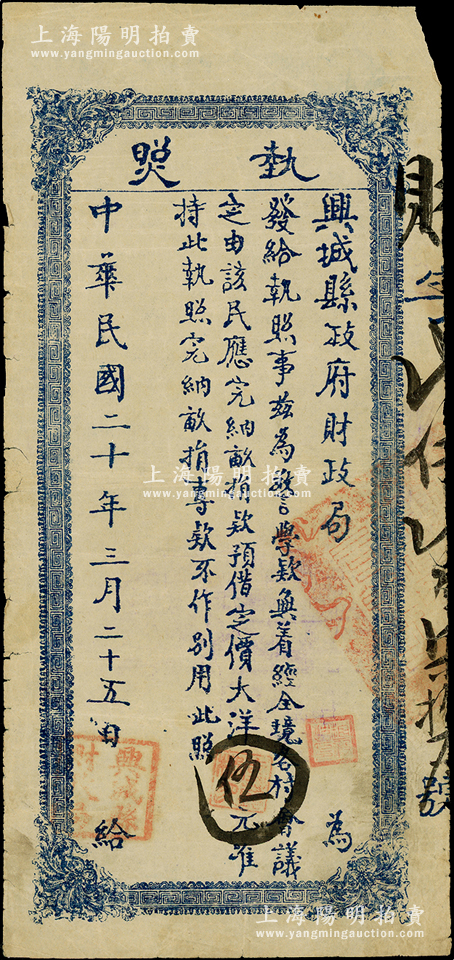 上海陽明拍賣
www.yangmingauction.com
執照
興城縣政府財政局 為
發給執照事茲為警學款無着經全境各村會議
定由該民應完納畝捐款預借定價大洋伍元准
持此執照完納畝捐專款不作別用此照
中華民國二十年三月二十五日 給
興城縣
財
號
上海陽明拍賣
www.yangmingauction.com
上海陽明拍賣
www.yangmingauction.com